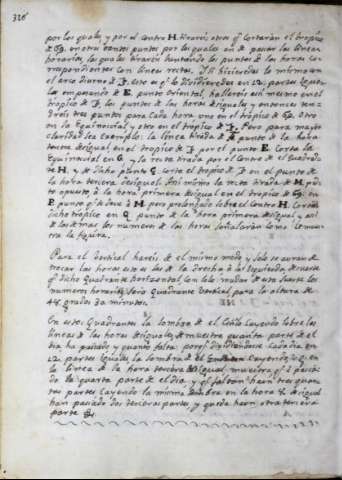 326
por los quales y por el centro H. tirareis otros q̃ cortarán el tropico
de ♋. en otros tantos puntos por los quales an de pasar las lineas
horarias, las quales tirareis juntando los puntos de las horas cor-
respondientes con lineas rectas. Y si hicieredes lo mismo en
el arco diurno de I. esto es q̃ lo dividieredes en 12. partes igua-
les empesando de E. punto oriental, hallareis asi mesmo en el
tropico de los puntos de las horas desiguales y entonces ten-
dreis tres puntos para cada hora uno en el tropico de ♋. otro
en la Equinoccial y otro en el tropico de Pero para mayor
claridad sea exemplo: la linea tirada de punto de la hora
tercera desigual en el tropico de por el punto E. corta la
Equinoccial en G. y la recta tirada por el centro de el Quadrado
H. y de dicho punto G. corta el tropico de en el punto de
la hora tercera desigual. Asi mismo la recta tirada de M. pun-
to opuesto à la hora primera desigual en el tropico de ♋. en
P. punto q̃ de à M. pero prolongado sobre el centro H. Cortará
dicho tropico en Q. punto de la hora primera desigual y asi
de las demas los numeros de las horas señalarán como demues-
tra la figura.
Para el vertical hareis de el mismo modo y solo se auran de
trocar las horas esto es las de la derecha à la izquierda de suerte
q̃ dicho Quadrante horizontal, con solo mudar de esta suerte los
numeros horarios sera Quadrante vertical para la altura de
48. grados 30 minutos.
En estos Quadrantes la sombra de el estilo cayendo sobre las
lineas de las horas desiguales demuestra quanta parte de el
dia ha pasado y quanta falta: porq̃ dividiendose cada dia en
12. partes iguales la sombra de el cayendo en
la linea de la hora tercera desigual muestra q̃ à pasado
la quarta parte de el dia, y q̃ faltan tres quar-
tas partes cayendo la misma sombra en la hora desigual
han pasado dos terceras partes y queda otra tercera
parte &.